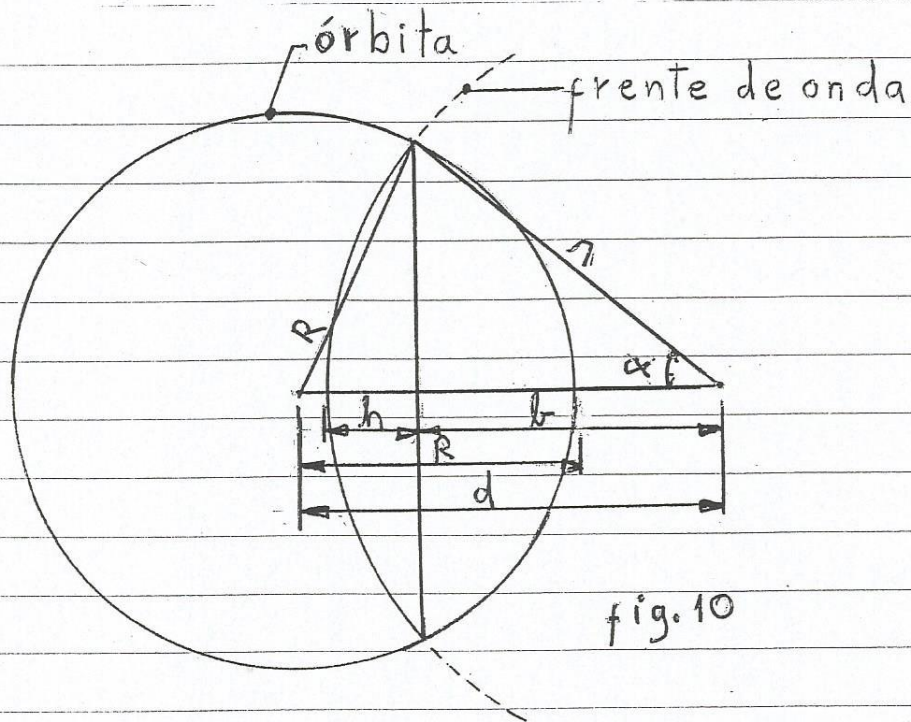 órbita
frente de onda
R
r
α
h
b
R
d
fig.10